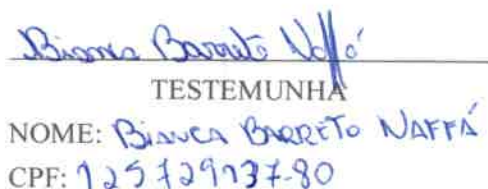 Bianca Barreto Naffá
TESTEMUNHA
NOME: BIANCA BARRETO NAFFÁ
CPF: 125729137-80